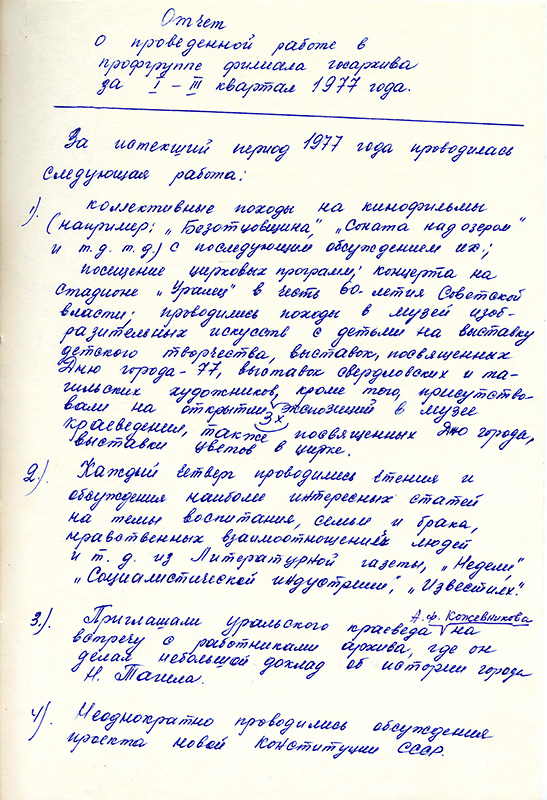 Отчет
о проведенной работе в
профгруппе филиала госархива
за I – III квартал 1977 года.
За истекший период 1977 года проводилась
следующая работа:
1). коллективные походы на кинофильмы
(например: „Безотцовщина", „Соната над озером"
и т.д. т.д) с последующим обсуждением их.;
посещение цирковых программ; концерта на
стадионе „Уралец" в честь 60-летия Советской
власти; проводились походы в музей изоб-
разительных искусств с детьми на выставку
детского творчества, выставок, посвященных
Дню города-77, выставок свердловских и та-
гильских художников, кроме того, присутство-
вали на открытии 3х экспозиций в музее
краеведения, также посвященных Дню города,
выставки цветов в цирке.
2.). Каждый четверг проводились чтения и
обсуждения наиболее интересных статей
на темы воспитания, семьи и брака,
нравственных взаимоотношений людей
и т.д. из Литературной газеты, „Недели"
„Социалистической индустрии", „Известиях."
3.). Приглашали уральского краеведа А.Ф. Кожевникова на
встречу с работниками архива, где он
делал небольшой доклад об истории города
Н. Тагила.
4). Неоднократно проводились обсуждения
проекта новой Конституции СССР.